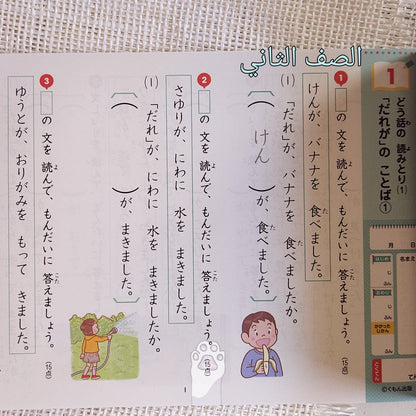 الصف الثاني
1
どう話の 読みとり①
「だれが」の ことば①
月 日
名まえ
はじめ
じ
ふん
おわり
じ
ふん
かかった
じかん
ふん
©くもん出版
1 □の 文を 読んで、もんだいに 答えましょう。
(15点)
けんが、バナナを 食べました。
(1) 「だれ」が、バナナを 食べましたか。
( けん )が、食べました。
2 □の 文を 読んで、もんだいに 答えましょう。
さゆりが、にわに 水を まきました。
(1) 「だれ」が、にわに 水を まきましたか。
( )が、まきました。
3 □の 文を 読んで、もんだいに 答えましょう。
(15点)
ゆうとが、おりがみを もって きました。
1